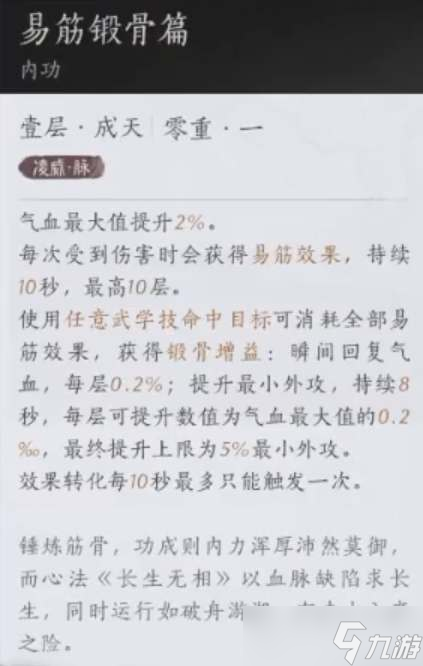 易筋锻骨篇
内功
壹层·成天 零重·一
凌威·脉
气血最大值提升2%。
每次受到伤害时会获得易筋效果，持续
10秒，最高10层。
使用任意武学技命中目标可消耗全部易
筋效果，获得锻骨增益：瞬间回复气
血，每层0.2%；提升最小外攻，持续8
秒，每层可提升数值为气血最大值的0.2
‰，最终提升上限为5%最小外攻。
效果转化每10秒最多只能触发一次。
锤炼筋骨，功成则内力浑厚沛然莫御，
而心法《长生无相》以血脉缺陷求长
生，同时运行如破舟游
之险。
九游